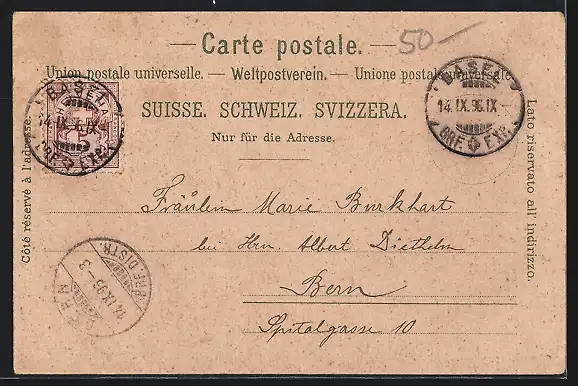 50-
— Carte postale. —
Union postale universelle. — Weltpostverein. — Unione postale universale
SUISSE. SCHWEIZ. SVIZZERA.
Nur für die Adresse.
Côté réservé à l'adresse.
Lato riservato all' indirizzo.
BASEL
14.IX.96.IX
BRF. EXP.
HELVETIA
BASEL
14.IX.96.IX
BRF. EXP.
Fräulein Marie Burkhart
bei Hrn. Albert Diethelm
Bern
Spitalgasse 10
BERN
BRF. DISTR.